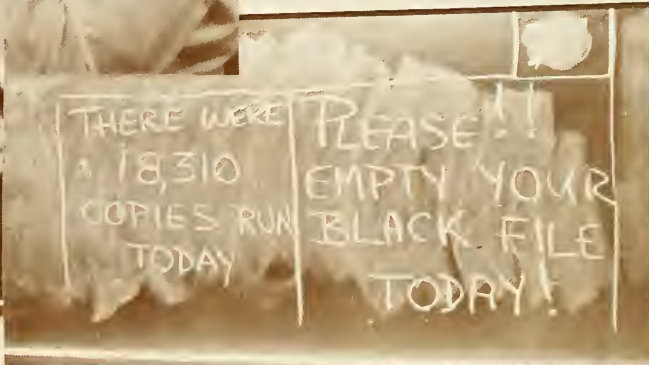 THERE WERE
18,310
COPIES RUN
TODAY
PLEASE!!
EMPTY YOUR
BLACK FILE
TODAY!